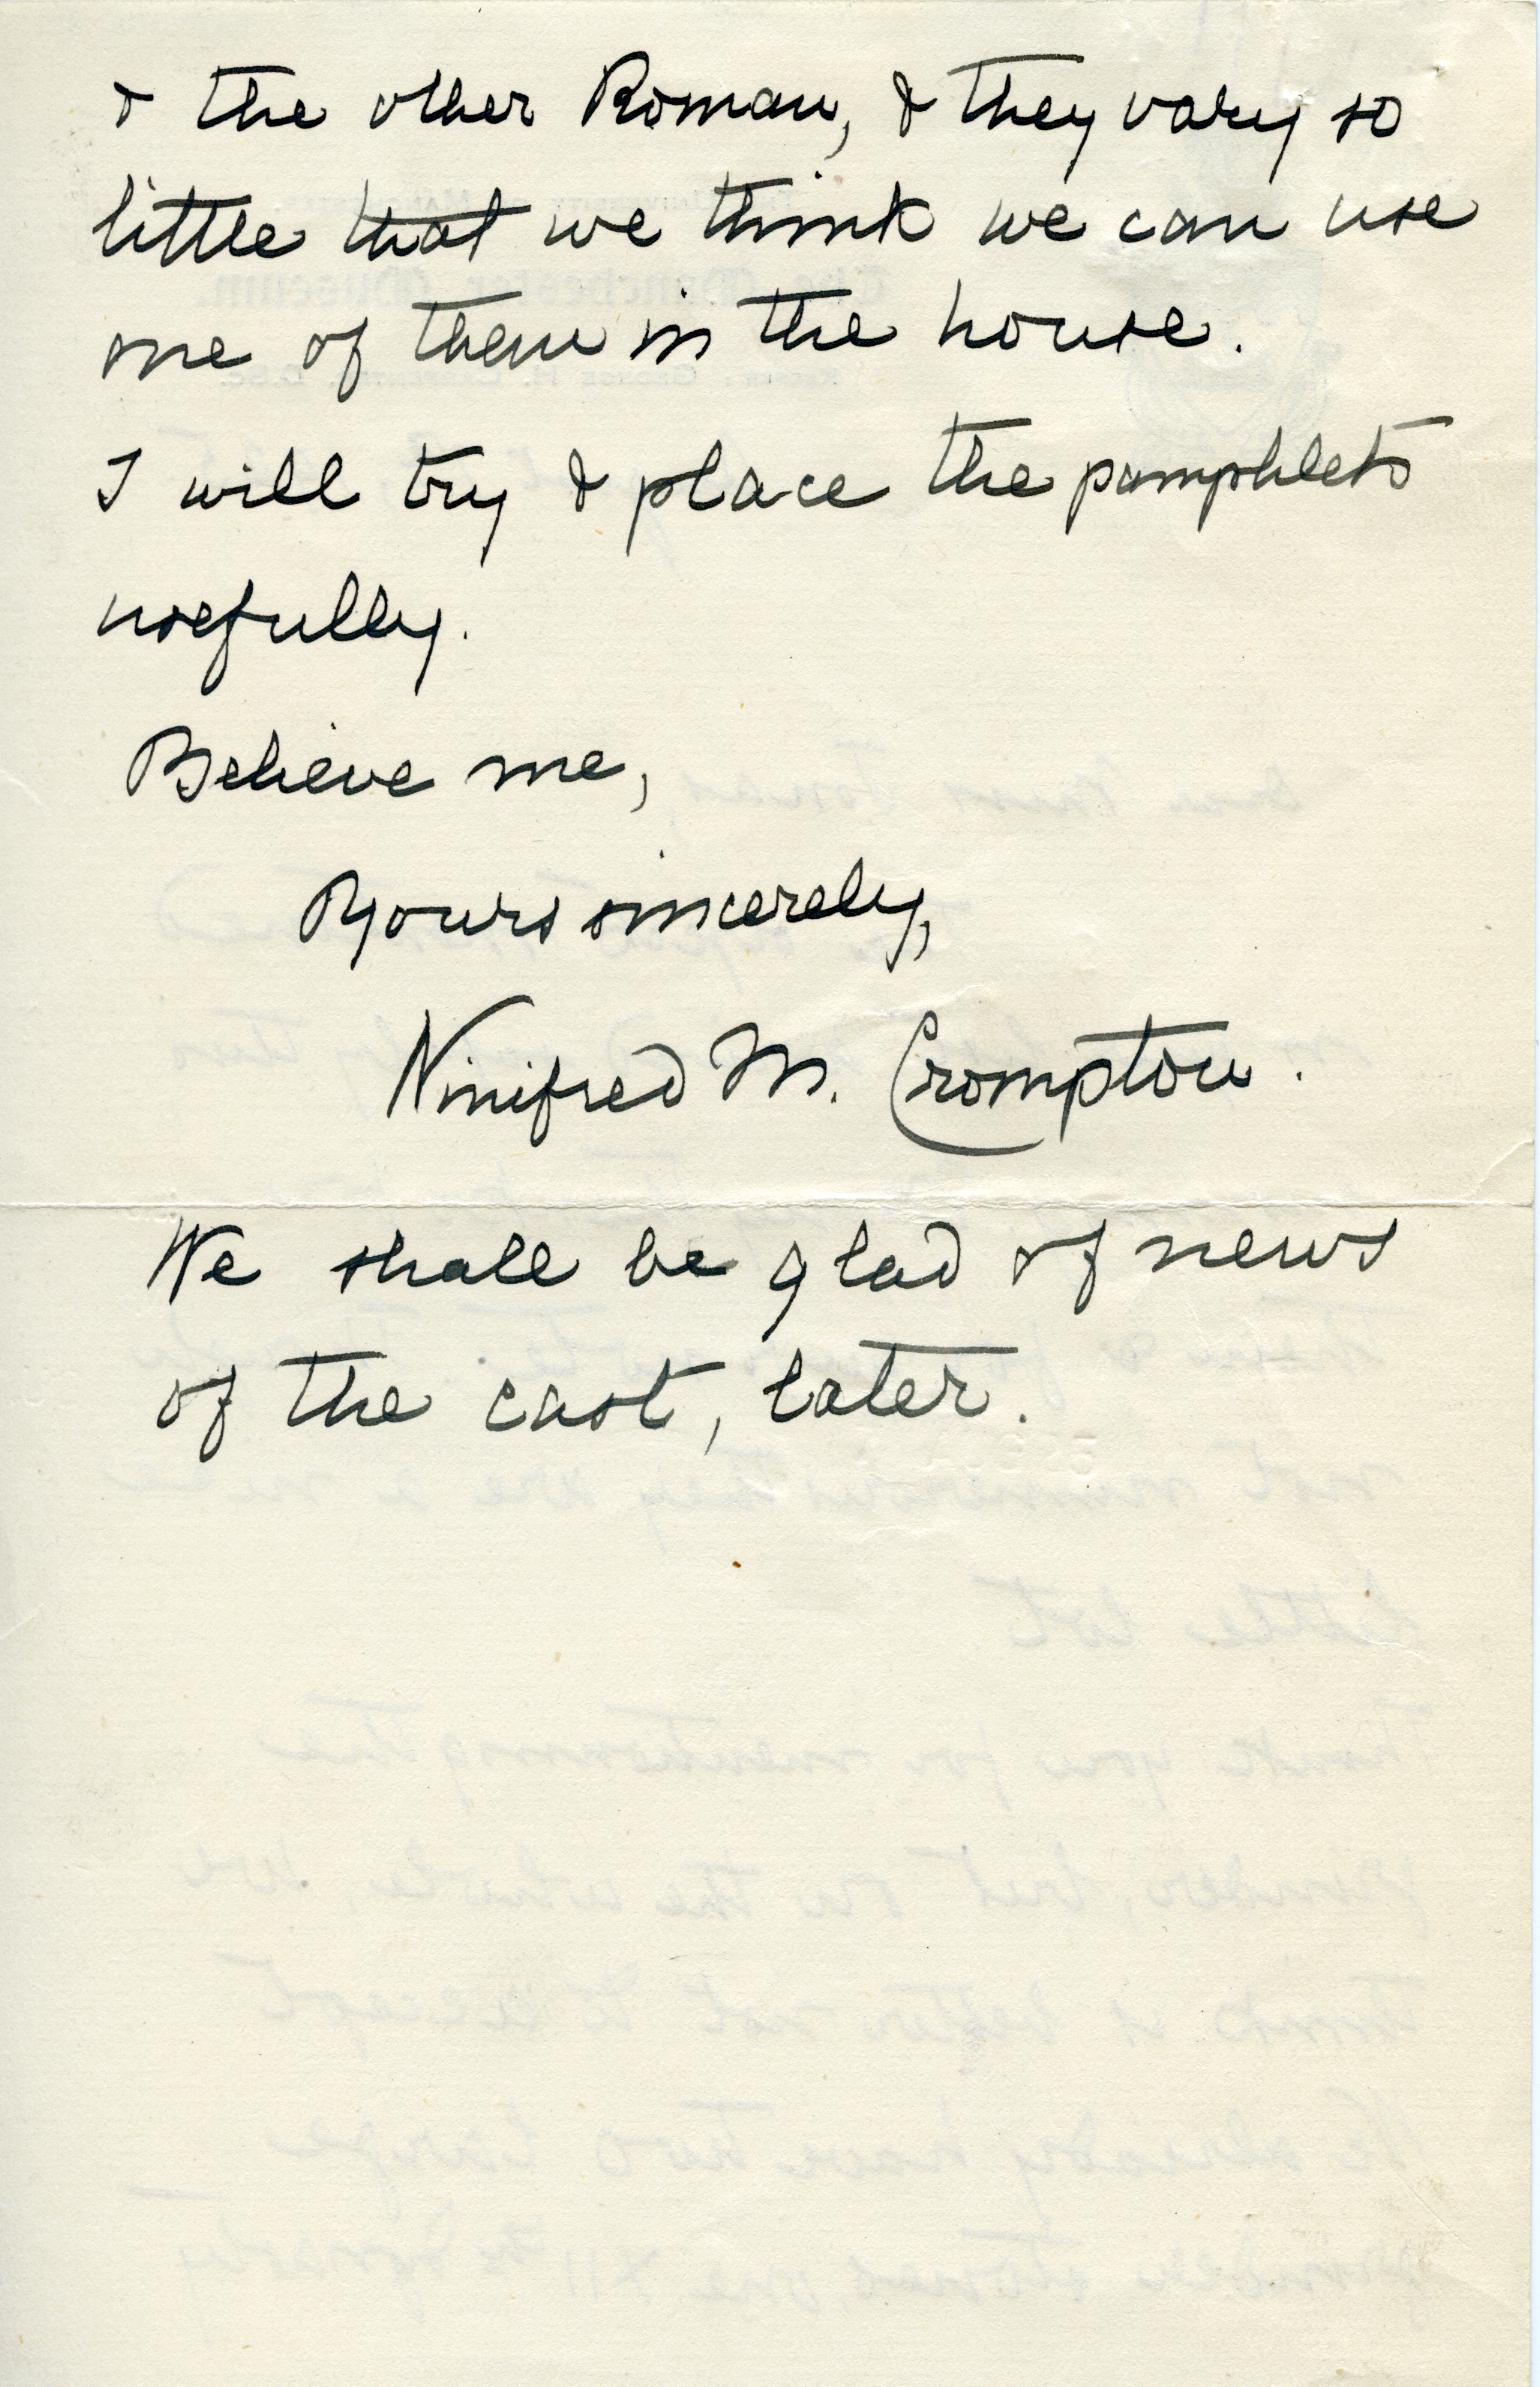 & the other Roman, & they vary so
little that we think we can use
one of them in the house.
I will try & place the pamphlets
usefully.
Believe me,
Yours sincerely,
Winifred M. Crompton.
We shall be glad of news
of the cast, later.